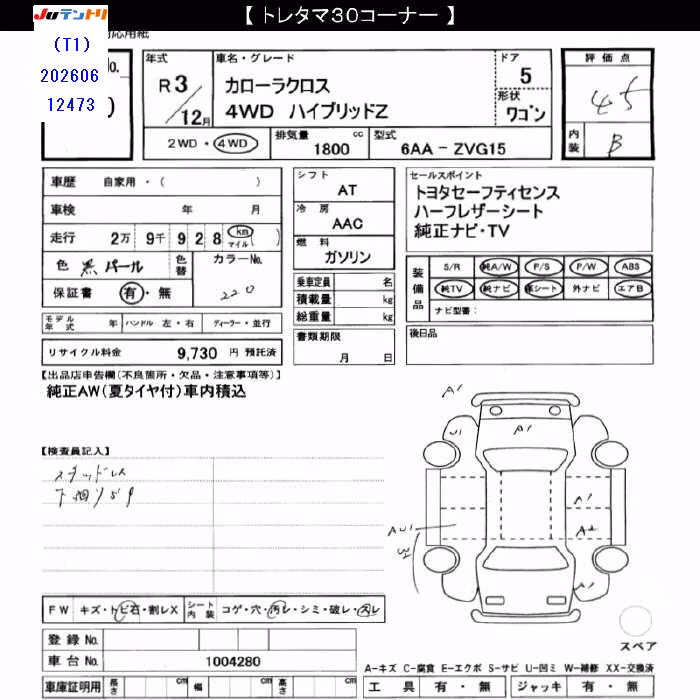 【 トレタマ30コーナー 】
JUテントリ
応用紙
(T1)
202606
12473
No.
年式
R 3 / 12月
車名・グレード
カローラクロス
4WD ハイブリッドZ
ドア
5
形状
ワゴン
評価点
4.5
内装
B
2WD・4WD
排気量 cc
1800
型式
6AA - ZVG15
車歴 自家用・( )
車検 年 月
走行 2万 9千 9 2 8 km マイル ( )
色 黒パール
色替
カラーNo.
220
保証書 有・無
モデル年式 年
ハンドル 左・右
ディーラー・並行
リサイクル料金 9,730 円 預託済
シフト
AT
冷房
AAC
燃料
ガソリン
乗車定員 名
積載量 kg
総重量 kg
書類期限
月 日
セールスポイント
トヨタセーフティセンス
ハーフレザーシート
純正ナビ・TV
装備品
S/R 純A/W P/S P/W ABS
純TV 純ナビ 革シート 外ナビ エアB
ナビ型番:
後日品
【出品店申告欄(不良箇所・欠品・注意事項等)】
純正AW(夏タイヤ付)車内積込
【検査員記入】
スタッドレス
下廻りサビ
A1
U1
A1
A1
A2
AU1
A1
FW キズ・トビ石・割レX
シート内装 コゲ・穴・汚レ・シミ・破レ・スレ
登録 No.
車台 No. 1004280
車庫証明用 長さ cm 幅 cm 高さ cm
スペア
A-キズ C-腐食 E-エクボ S-サビ U-凹ミ W-補修 XX-交換済
工具 有・無 ジャッキ 有・無